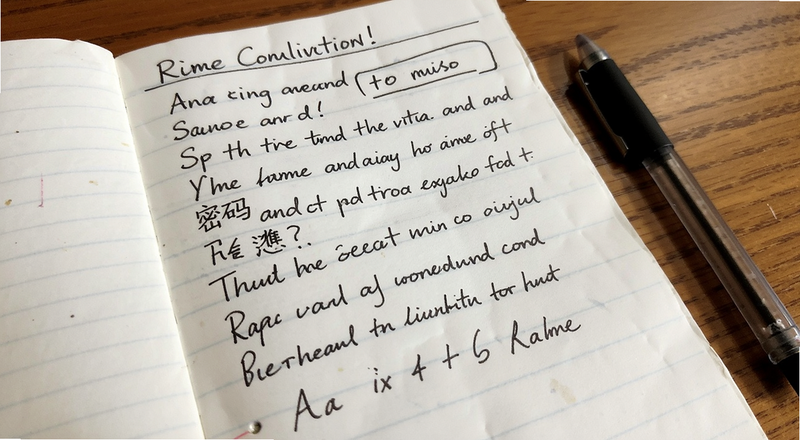 Rime Comlivition!
Ana xing aneand (to muso
Saunoe anr d!
Sp th tire timd the vitia. and and
Yhe fanme andaiay ho aime oft
密码 and ct pd troa exgako fcd t.
?
Thuut bne
min co
Rapc vard of wonedund cond
Bierheaul tn liunkitn tor hut
Aa ix 4 + 6 Ralme